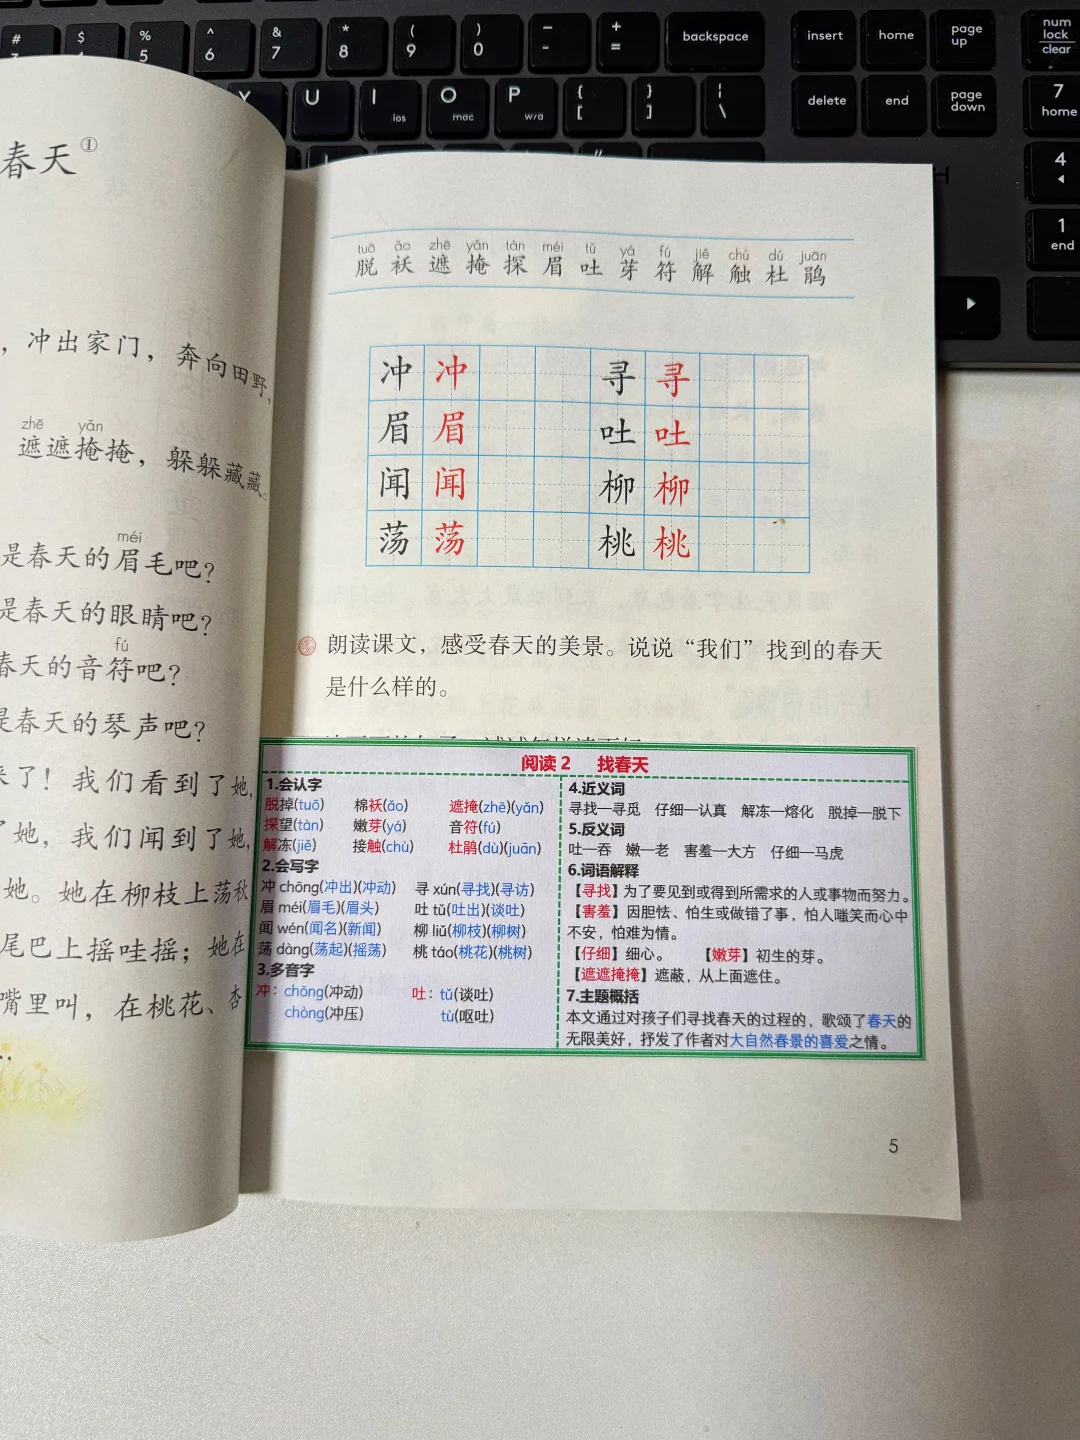 # $ % ^ & * ( ) - +
4 5 6 7 8 9 0 - = backspace
insert home page up num lock clear
Y U I ios O mac P w/a { [ } ] | \
delete end page down 7 home
4
1 end
春天①
，冲出家门，奔向田野，
zhē yǎn
遮遮掩掩，躲躲藏藏。
méi
是春天的眉毛吧？
是春天的眼睛吧？
fú
春天的音符吧？
是春天的琴声吧？
来了！我们看到了她，
了她，我们闻到了她，
她。她在柳枝上荡秋
尾巴上摇哇摇；她在
嘴里叫，在桃花、杏
tuō ǎo zhē yǎn tàn méi tǔ yá fú jiě chù dù juān
脱 袄 遮 掩 探 眉 吐 芽 符 解 触 杜 鹃
冲 冲 寻 寻
眉 眉 吐 吐
闻 闻 柳 柳
荡 荡 桃 桃
朗读课文，感受春天的美景。说说“我们”找到的春天
是什么样的。
阅读 2 找春天
1.会认字
脱掉(tuō) 棉袄(ǎo) 遮掩(zhē)(yǎn)
探望(tàn) 嫩芽(yá) 音符(fú)
解冻(jiě) 接触(chù) 杜鹃(dù)(juān)
2.会写字
冲 chōng(冲出)(冲动) 寻 xún(寻找)(寻访)
眉 méi(眉毛)(眉头) 吐 tǔ(吐出)(谈吐)
闻 wén(闻名)(新闻) 柳 liǔ(柳枝)(柳树)
荡 dàng(荡起)(摇荡) 桃 táo(桃花)(桃树)
3.多音字
冲：chōng(冲动) 吐：tǔ(谈吐)
chòng(冲压) tù(呕吐)
4.近义词
寻找—寻觅 仔细—认真 解冻—熔化 脱掉—脱下
5.反义词
吐—吞 嫩—老 害羞—大方 仔细—马虎
6.词语解释
【寻找】为了要见到或得到所需求的人或事物而努力。
【害羞】因胆怯、怕生或做错了事，怕人嗤笑而心中
不安，怕难为情。
【仔细】细心。 【嫩芽】初生的芽。
【遮遮掩掩】遮蔽，从上面遮住。
7.主题概括
本文通过对孩子们寻找春天的过程的，歌颂了春天的
无限美好，抒发了作者对大自然春景的喜爱之情。
5